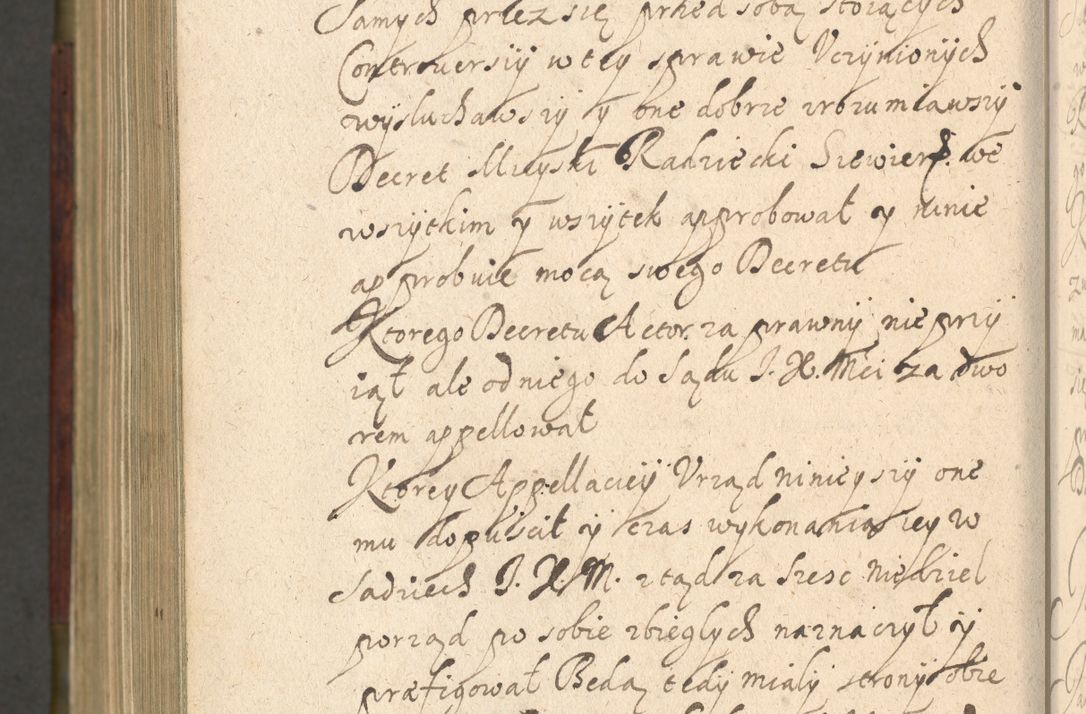 Samych przez się przed sobą stoiących
Controuersiÿ w teÿ sprawie Vczÿnionÿch
wÿsluchawszÿ ÿ one dobrze zrozumiawszÿ
Decret Mieÿski Radziecki Siewiers. we
wszÿtkim ÿ wszÿtek approbował ÿ ninie
approbuie mocą swego Decretu
Ktorego Decretu Actor za prawnÿ nie prziÿ
iął ale od niego do Sądu J. X. Mci za dwo
rem appellował
Ktorey Appellacieÿ Vrząd ninieÿszÿ one
mu dopuścił ÿ czas wykonania iey w
Sadziech J. X. M. z tąd za szesc niedziel
porząd po sobie zbiegłÿch naznaczÿł ÿ
præfigował Bedą tedÿ mialÿ stronÿ obie